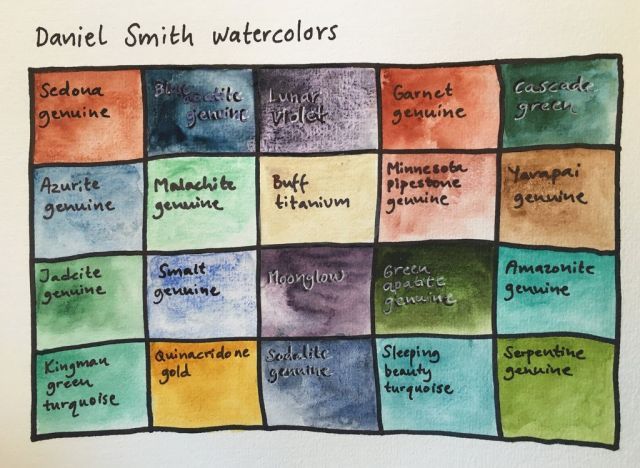 Daniel Smith watercolors
Sedona
genuine
Blue apatite
genuine
Lunar
violet
Garnet
genuine
Cascade
green
Azurite
genuine
Malachite
genuine
Buff
titanium
Minnesota
pipestone
genuine
Yavapai
genuine
Jadeite
genuine
Smalt
genuine
Moonglow
Green
apatite
genuine
Amazonite
genuine
Kingman
green
turquoise
Quinacridone
gold
Sodalite
genuine
Sleeping
beauty
turquoise
Serpentine
genuine